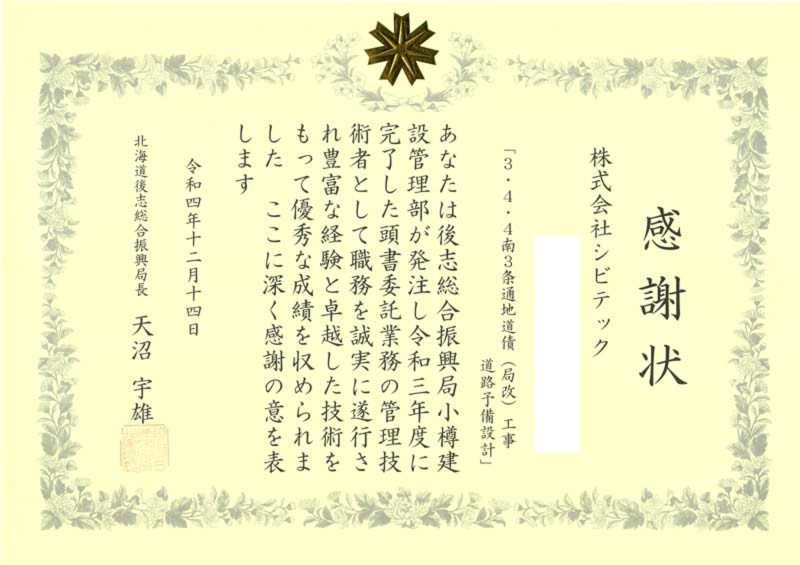 感謝状
株式会社シビテック
「3・4・4南3条通地道債(局改)工事
道路予備設計」
あなたは後志総合振興局小樽建
設管理部が発注し令和三年度に
完了した頭書委託業務の管理技
術者として職務を誠実に遂行さ
れ豊富な経験と卓越した技術を
もって優秀な成績を収められま
した ここに深く感謝の意を表
します
令和四年十二月十四日
北海道後志総合振興局長 天沼 宇雄